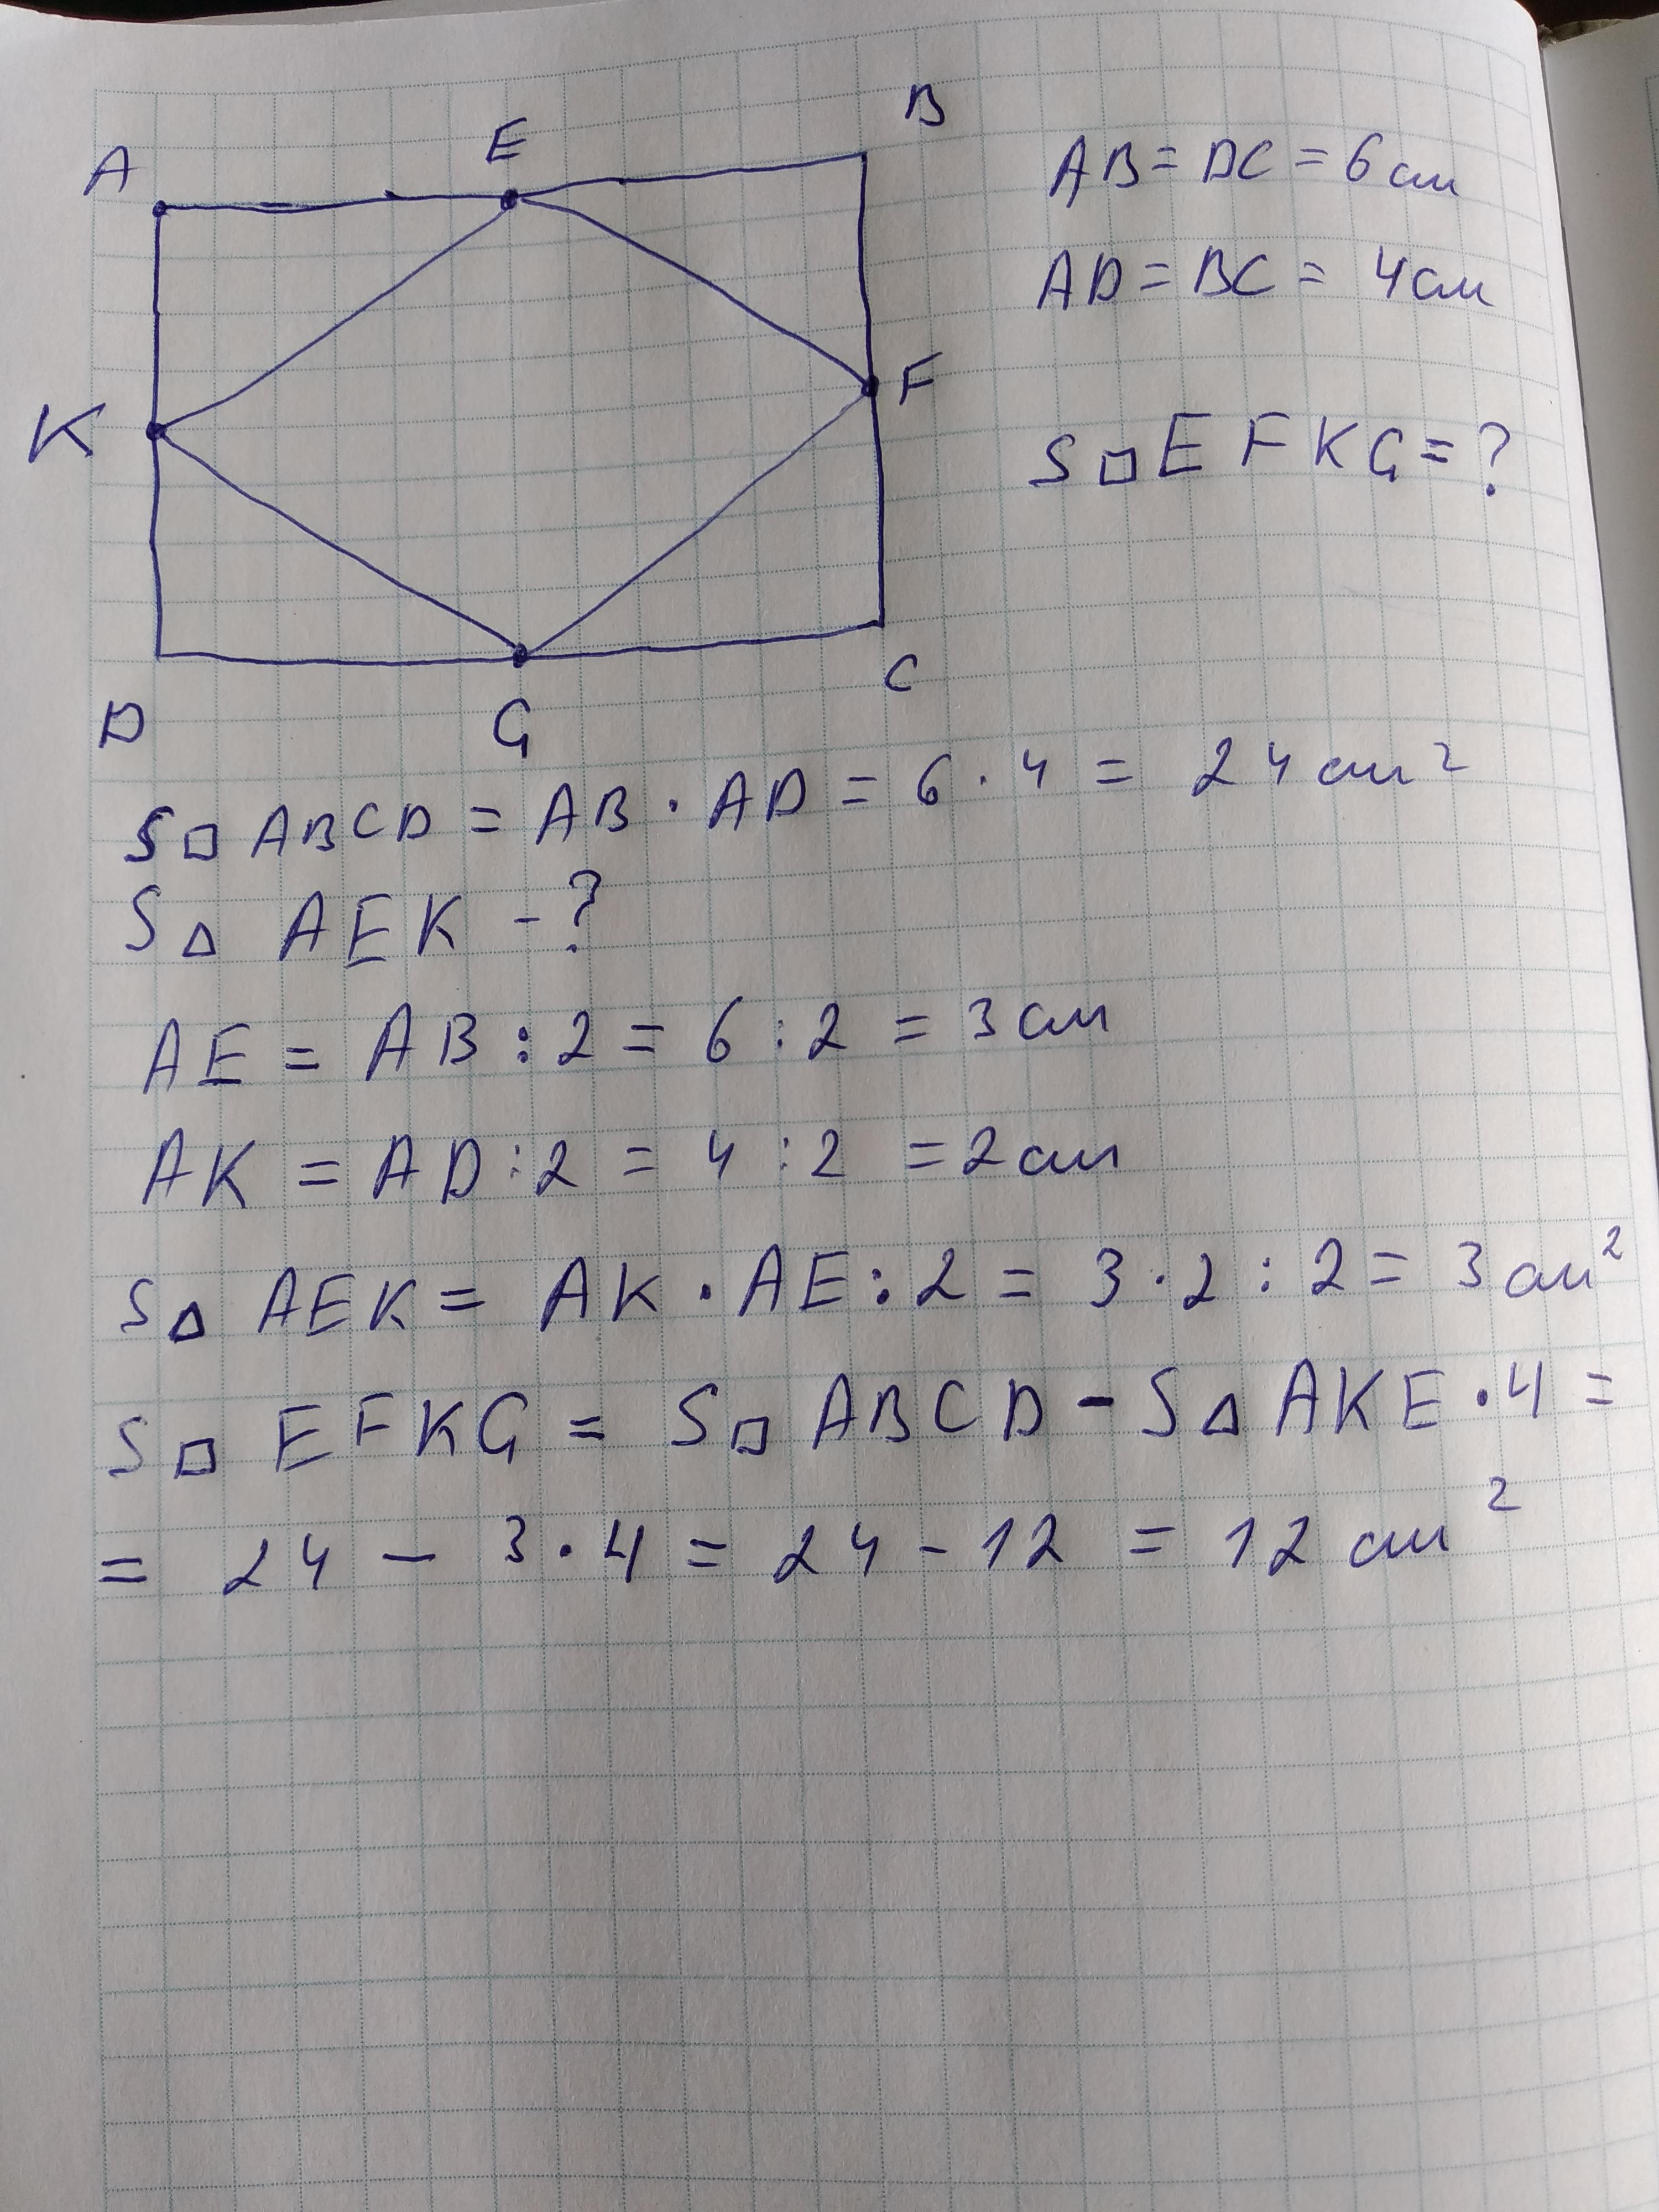 A E B
K F
D G C
AB = DC = 6 см
AD = BC = 4 см
S□EFKG = ?
S□ ABCD = AB · AD = 6 · 4 = 24 см²
S△ AEK - ?
AE = AB : 2 = 6 : 2 = 3 см
AK = AD : 2 = 4 : 2 = 2 см
S△ AEK = AK · AE : 2 = 3 · 2 : 2 = 3 см²
S□ EFKG = S□ ABCD - S△ AKE · 4 =
= 24 - 3 · 4 = 24 - 12 = 12 см²